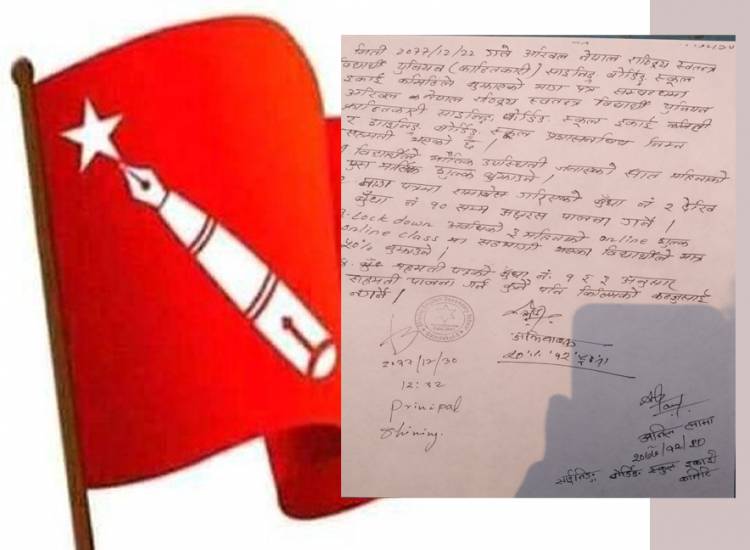 मिति २०७७/१२/२२ गते अखिल नेपाल राष्ट्रिय स्वतन्त्र
विद्यार्थी युनियन (क्रान्तिकारी) साइनिङ्ग बोर्डिङ्ग स्कुल
इकाई कमिटिले बुझाएको माग पत्र सम्बन्धमा
अखिल नेपाल राष्ट्रिय स्वतन्त्र विद्यार्थी युनियन
क्रान्तिकारी साइनिङ्ग बोर्डिङ्ग स्कुल इकाई कमिटी
र साइनिङ्ग बोर्डिङ्ग स्कुल प्रशासनबिच निम्न
सहमती भएको छ।
विद्यार्थीले भौतिक उपस्थिती जनाएको सात महिनाको
पुरा मासिक शुल्क बुझाउने।
माग पत्रमा समावेस गरिएको बुँधा नं २ देखि
बुँधा नं १० सम्म अक्षरस पालना गर्ने।
३. Lock down अवधिको ३ महिनाको online शुल्क
online class मा सहभागी भएका विद्यार्थीले मात्र
५०% बुझाउने।
सहमती पत्रको बुँधा नं. १ २ ३ अनुसार
सहमती पालना गर्न कुनै पनि किसिमको कन्जुसाई
नगर्ने।
अभिभावक
2077/12/30
12:32
Prinipal
Shining.
अनिल लामा
साईनिङ्ग बोर्डिङ्ग स्कुल इकाई
कमिटि